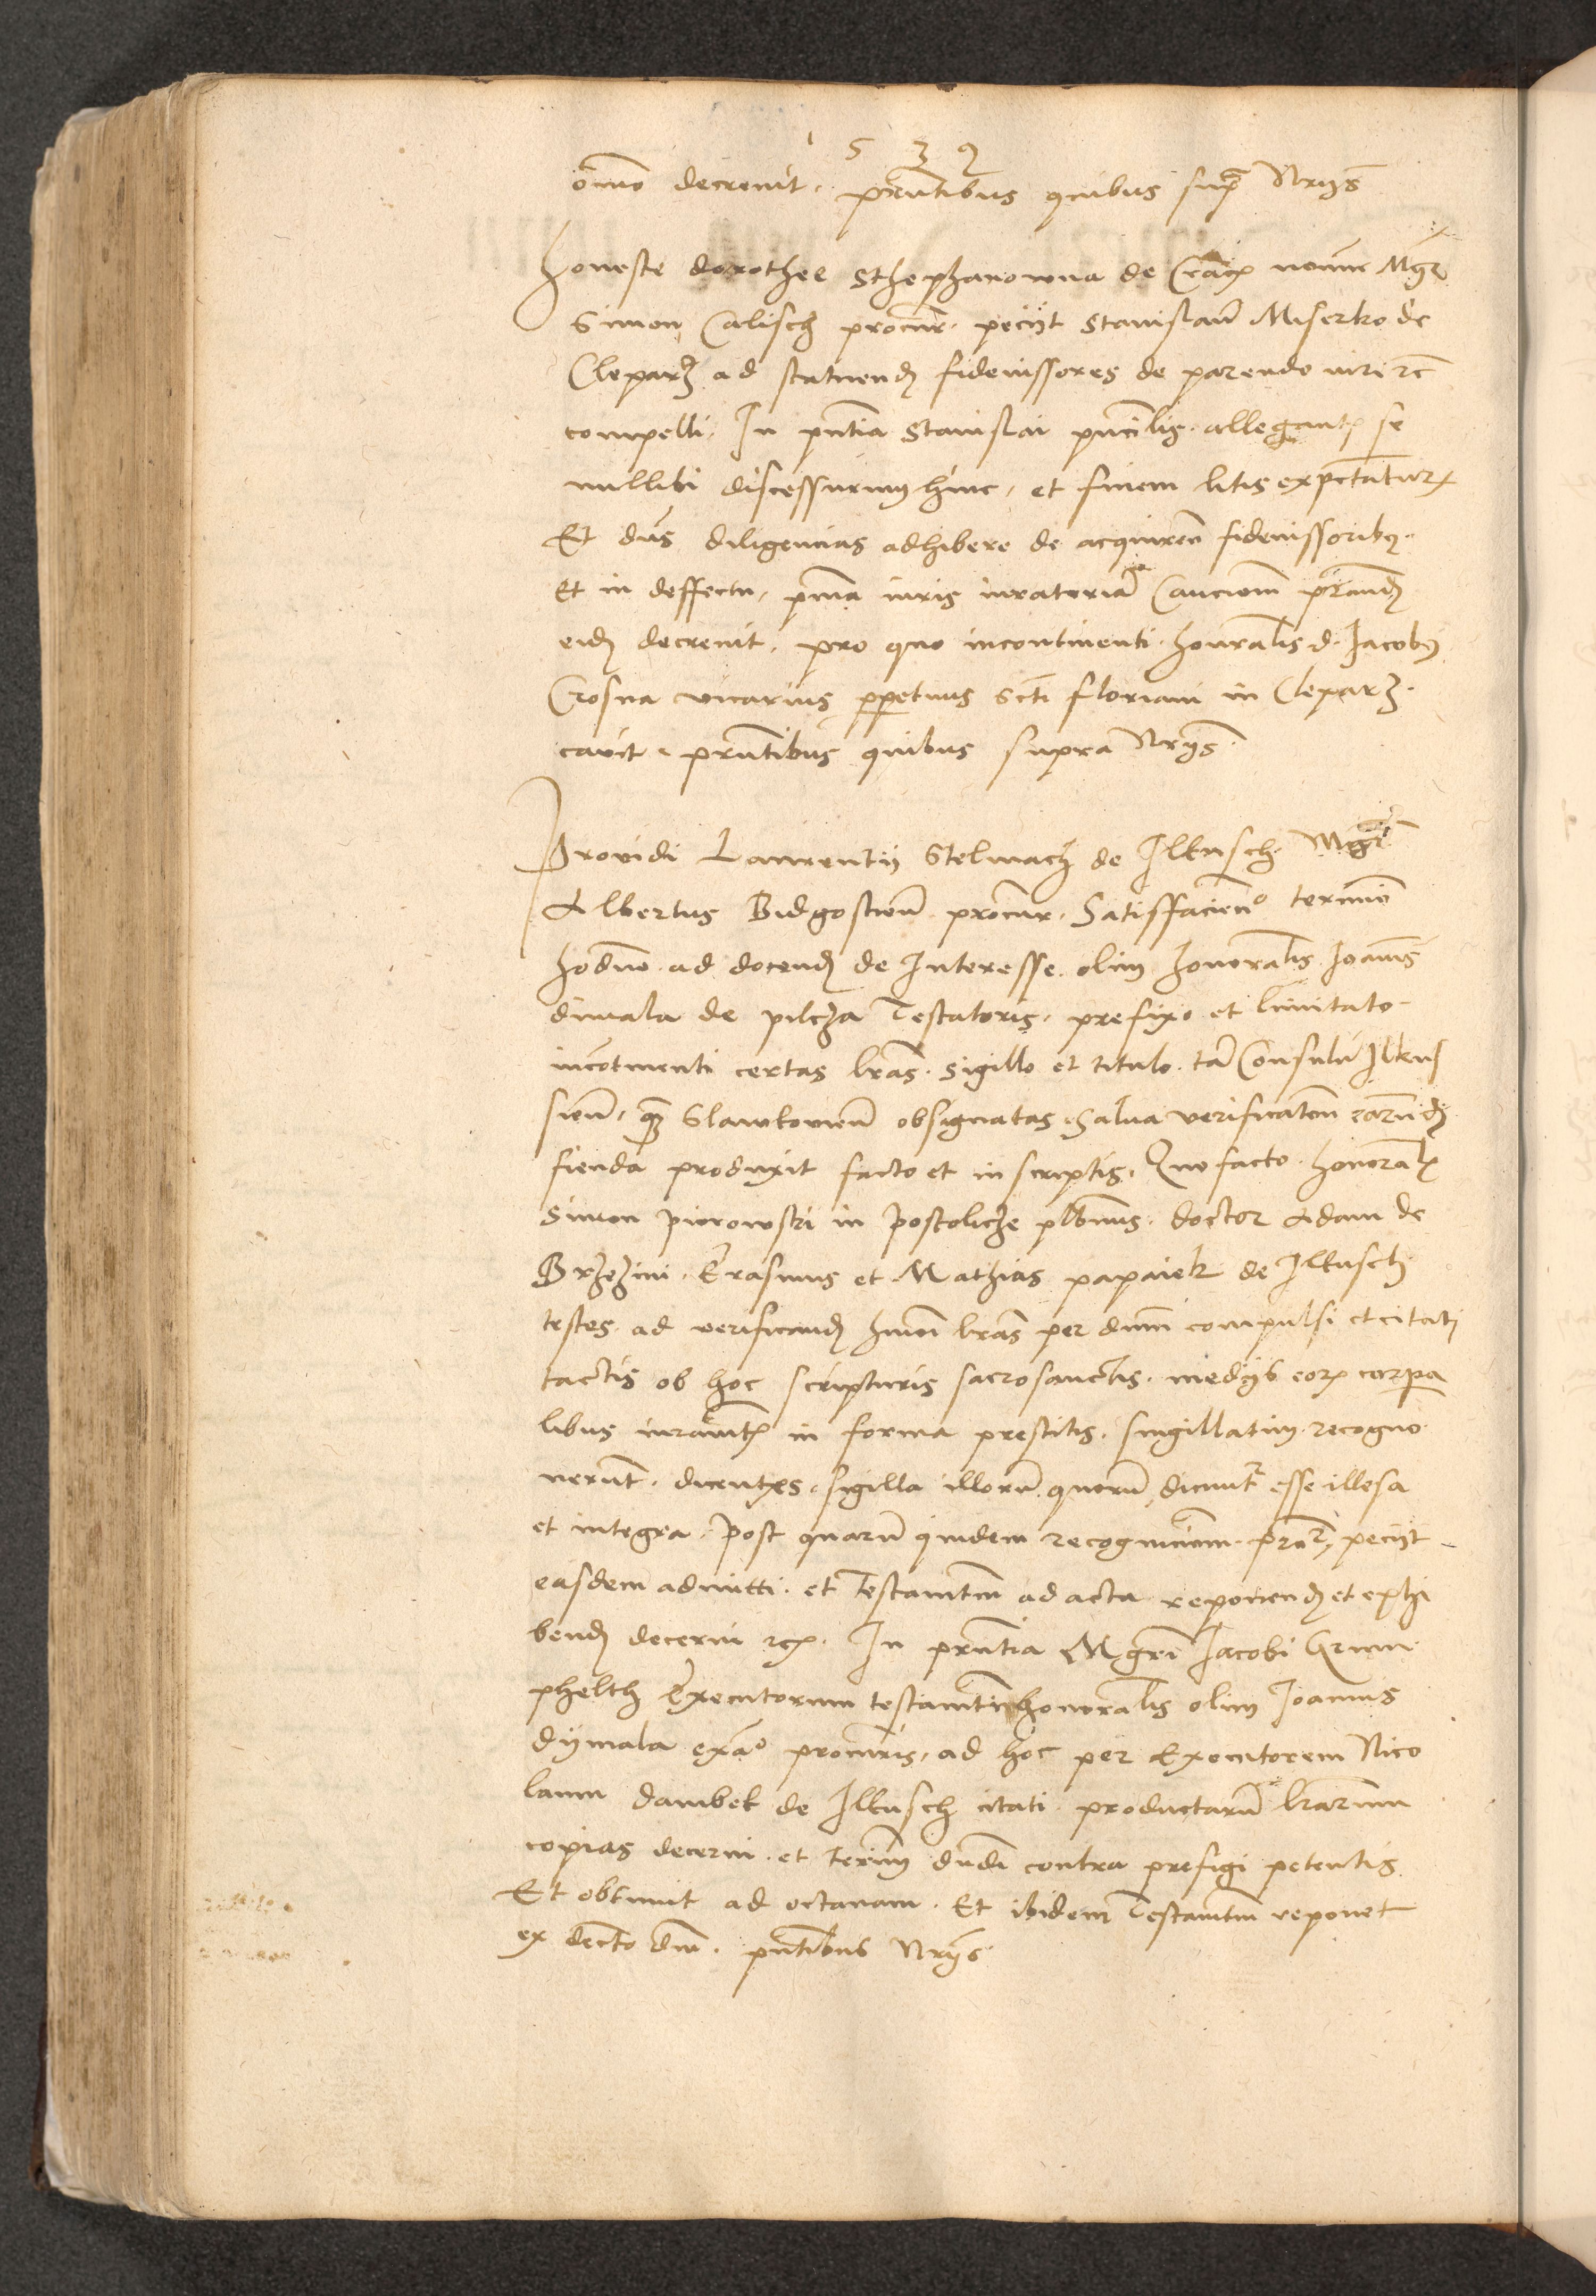 1 5 3 2
om̄io decrevit. p̄ntibus quibus supra Nr̄ys
honeste dorothee Sthephanowna de Crac nomine Mgr
Simon Calisch procur. peciit Stanislaū Miserko de
Cleparz ad statuend fideiussores de parendo iuri rc
compelli. In pn̄tia Stanislai prin̄cilis. allegant se
nullibi discessurum hinc, et finem litis expectatur
Et dn̄s diligencias adhibere de acquiren̄ fideiussoribus.
Et in deffectu, iuris iuratoriā Caucionem
eid decrevit. pro quo incontinenti. honralis d. Jacobus
Crosna vicarius perpetuus Scti floriani in Cleparz.
cavit. prn̄tibus quibus supra Nrys.
Providi Laurentij Stelmach de Ilkusch. Mgr
Albertus Bidgostien̄ procur. Satisfacien̄o termino
hodno ad docend de Interesse. olim honoralis Joannis
dimala de pilcza Testatoris. prefixo et limitato
incontinenti certas lrās. sigillo et titulo. tā Consulū Ilkus
sien̄. qm̄ Slawkovien̄ obsignatas. Salua verificatōn earund
fienda produxit facto et in scriptis. Quo facto. honoral
Simon piorowski in postolicze plbnus. doctor Adam de
Brzezini. Erasmus et Mathias papaiek de Ilkusch.
testes. ad verificand hmōi lrās per dnm̄ compulsi et citati
tactis ob hoc scripturis sacrosanctis. medys eor corpa
libus iuramt in forma prestitis. singillatim. recogno
verunt. dicentes. sigilla illorū quorū dicunt esse illesa
et integra. Post quarū quidem recognicionem. peciit
easdem admitti. et Testamtm ad acta reponend et exhi
bend decerni rc. In prn̄tia Mgri Jacobi Grun
phelth Executorum testamti honoralis olim Joannis
dymala procuris, ad hoc per Executorem Nico
laum dambek de Ilkusch citati. productarū lrarum
copias decerni. et termn̄ dn̄di contra prefigi petentis
Et obtinuit ad octavam. Et ibidem Testamtm reponet
ex decto dni. pn̄tibus Nrys.